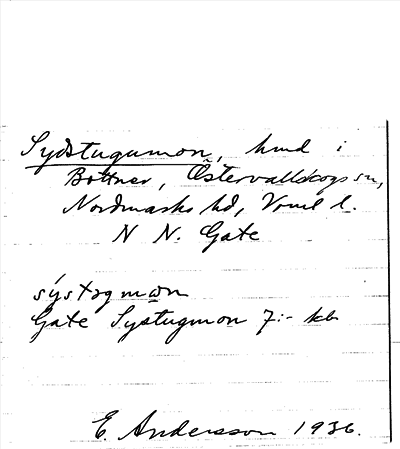 Sydstugumon, hmd i
Bottner, Östervallskogs sn,
Nordmarks hd, Vrml l.
N N. Gate
systəgmon
Gate Systugmon 7:- kb
E. Andersson 1936.